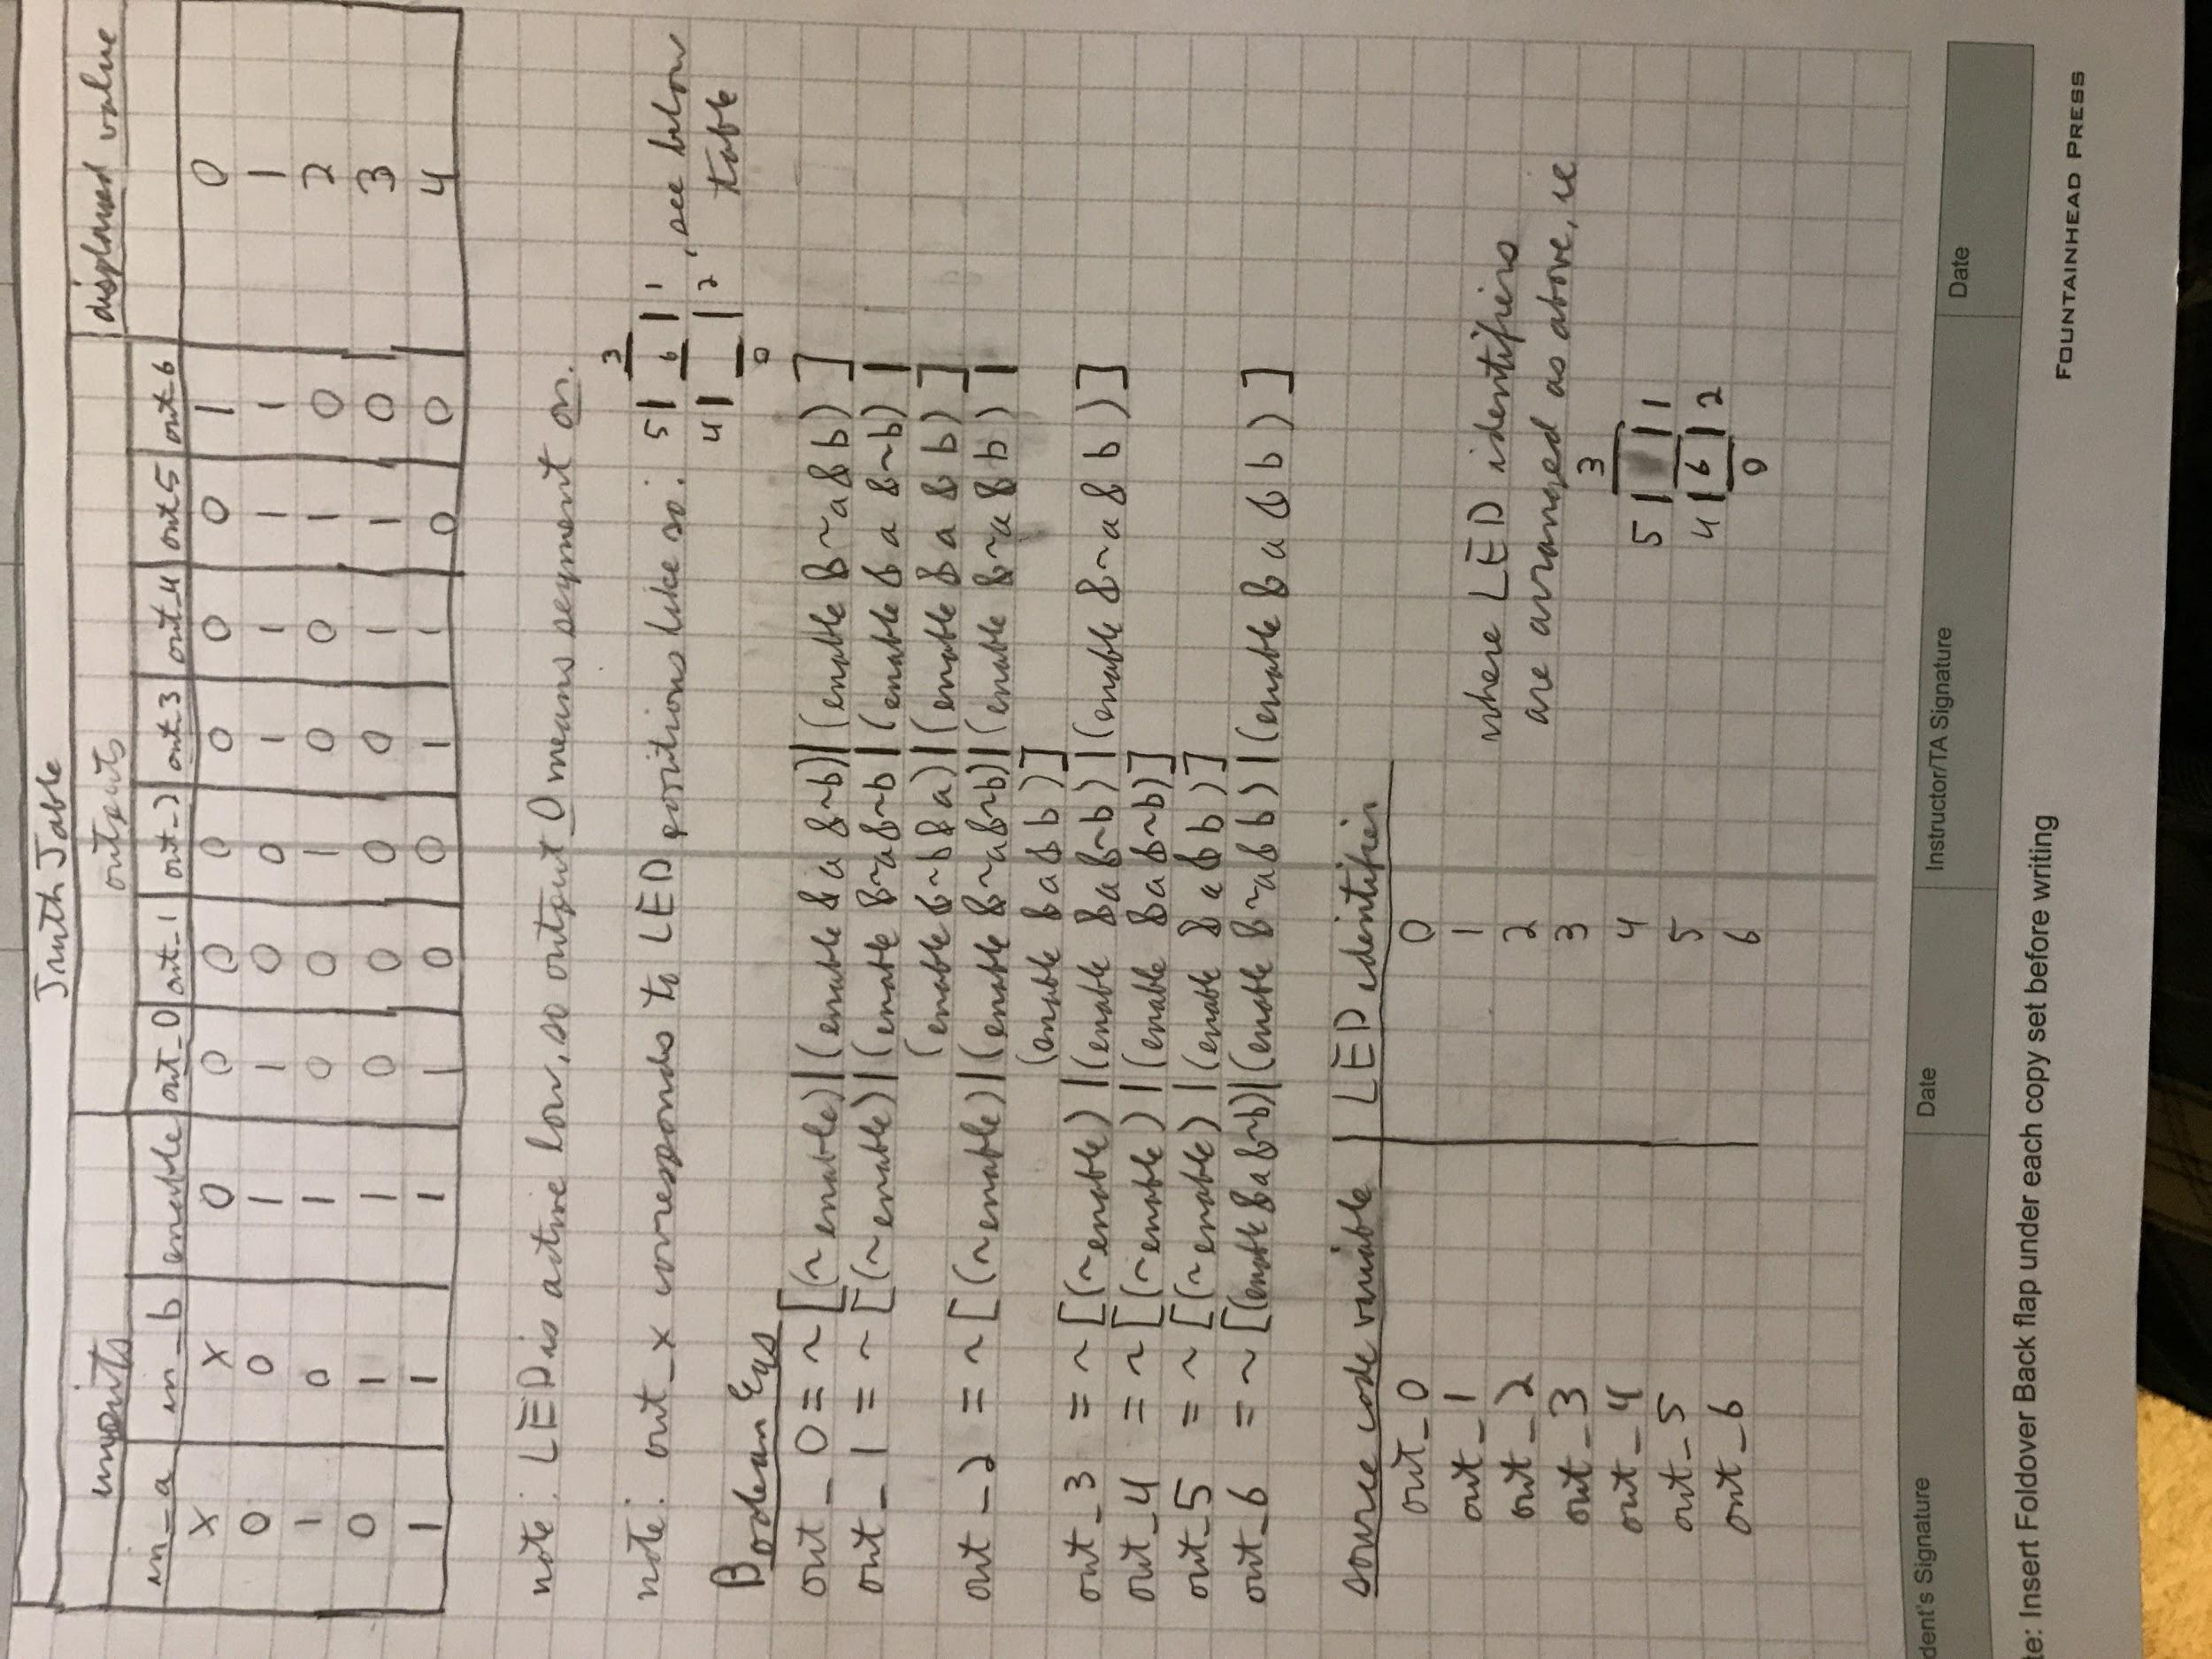 Truth Table
inputs outputs displayed value
in_a in_b enable out_0 out_1 out_2 out_3 out_4 out_5 out_6
X X 0 0 0 0 0 0 0 1 0
0 0 1 1 0 0 1 1 1 1 1
1 0 1 0 0 1 0 0 1 0 2
0 1 1 0 0 0 0 1 1 0 3
1 1 1 1 0 0 1 1 0 0 4
note: LED is active low, so output 0 means segment on.
note: out_x corresponds to LED positions like so: 5 3 6 1 4 0 2, see below table
Boolean Eqs
out_0 = ~[(~enable)|(enable & a &~b)|(enable &~a & b)]
out_1 = ~[(~enable)|(enable &~a&~b|(enable & a &~b)|
(enable &~b & a)|(enable & a & b)]
out_2 = ~[(~enable)|(enable &~a&~b)|(enable &~a & b)|
(enable & a & b)]
out_3 = ~[(~enable)|(enable & a&~b)|(enable &~a & b)]
out_4 = ~[(~enable)|(enable & a&~b)]
out_5 = ~[(~enable)|(enable & a & b)]
out_6 = ~[(enable & a&~b)|(enable &~a& b)|(enable & a & b)]
source code variable LED identifier
out_0 0
out_1 1
out_2 2
out_3 3
out_4 4
out_5 5
out_6 6
where LED identifiers
are arranged as above, ie
3
5 1
4 6 2
0
dent's Signature Date Instructor/TA Signature Date
te: Insert Foldover Back flap under each copy set before writing
FOUNTAINHEAD PRESS